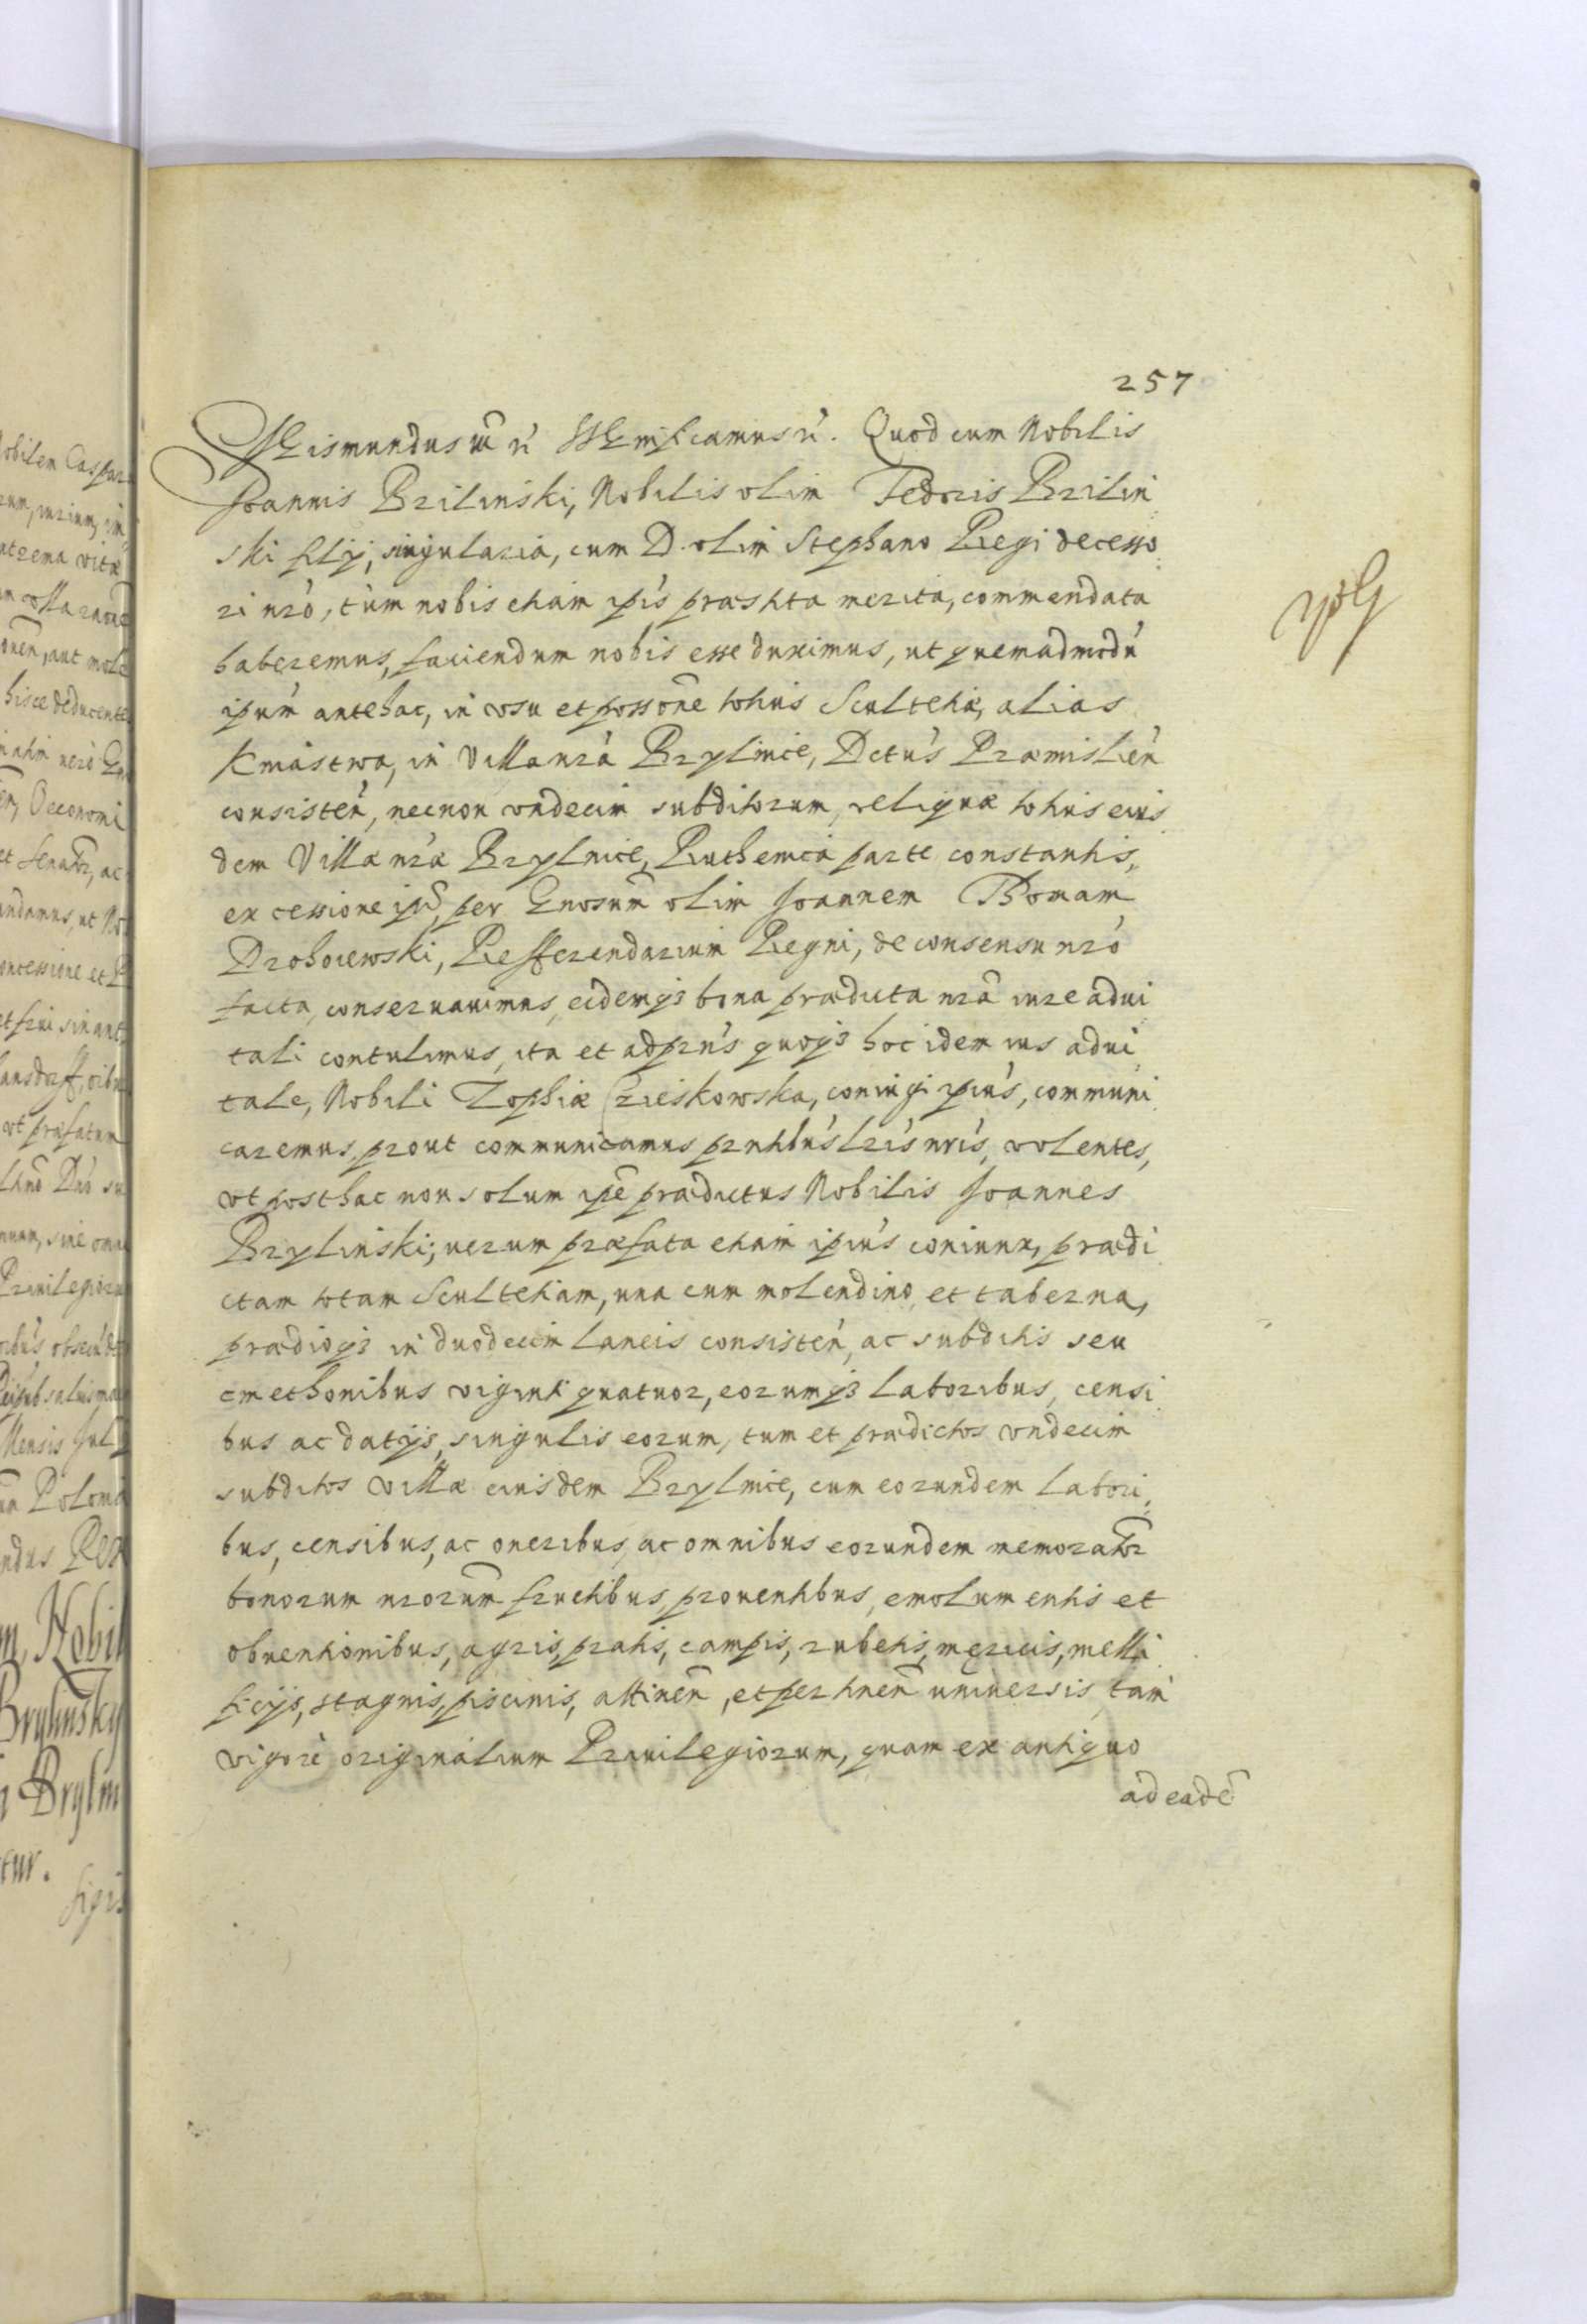 257
Sigismundus III rź Sigmficamus rź. Quod cum Nobilis
Joannis Brilinśki, Nobilis olim Fedoris Brilin
ski filÿ, singularia, cum D. olim Stephano Regi decesso
ri nrō, tùm nobis etiam ipīs præstita merita, commendata
haberemus, faciendum nobis esse duximus, ut quemadmodū
ipūm antehac, in vsu et possōne totius Scultetiæ, alias
Kniastwa, in Villa nrā Brylince, Dctūs Præmislień
consisteń, necnon vndecim subditorum, reliquæ totius eius
dem Villæ nræ Brylnice, Ruthenica parte constantis,
ex cessione ipī, per Gnosum olim Joannem Thomam
Drohoiewski, Refferendarium Regni, de consensu nrō
facta, conseruauimus, eidemqꝫ bona prædicta nrā iure adui
tali contulimus, ita et adprńs quoqꝫ hoc idem ius adui
tale, Nobili Zophiæ Czieskowska, coniugi ipīus, communi
caremus, prout communicamus prntibūs lrīs nrīs, volentes,
vt posthac non solum ipē prædictus Nobilis Joannes
Brylinski; uerum præfata etiam ipīus coniunx, prædi
ctam totam Scultetiam, una cum molendino et taberna,
prædioqꝫ in duodecim laneis consisteń, ac subditis seu
cmethonibus viginti quatuor, eorumqꝫ laboribus, censi
bus ac datijs, singulis eorum, tum et prædictos vndecim
subditos villæ eiusdem Brylnice, cum eorundem labori
bus, censibus, ac oneribus, ac omnibus eorundem memorator
bonorum nrorum fructibus, prouentibus, emolumentis et
obuentionibus, agris, pratis, campis, rubetis, mericis, melli
ficijs, stagnis, piscinis, attinen, et pertinen uniuersis, tam
vigore originalium Priuilegiorum, quam ex antiquo
ad eadē